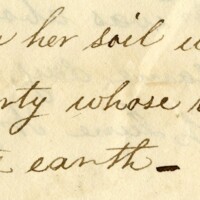 her soil
whose
earth